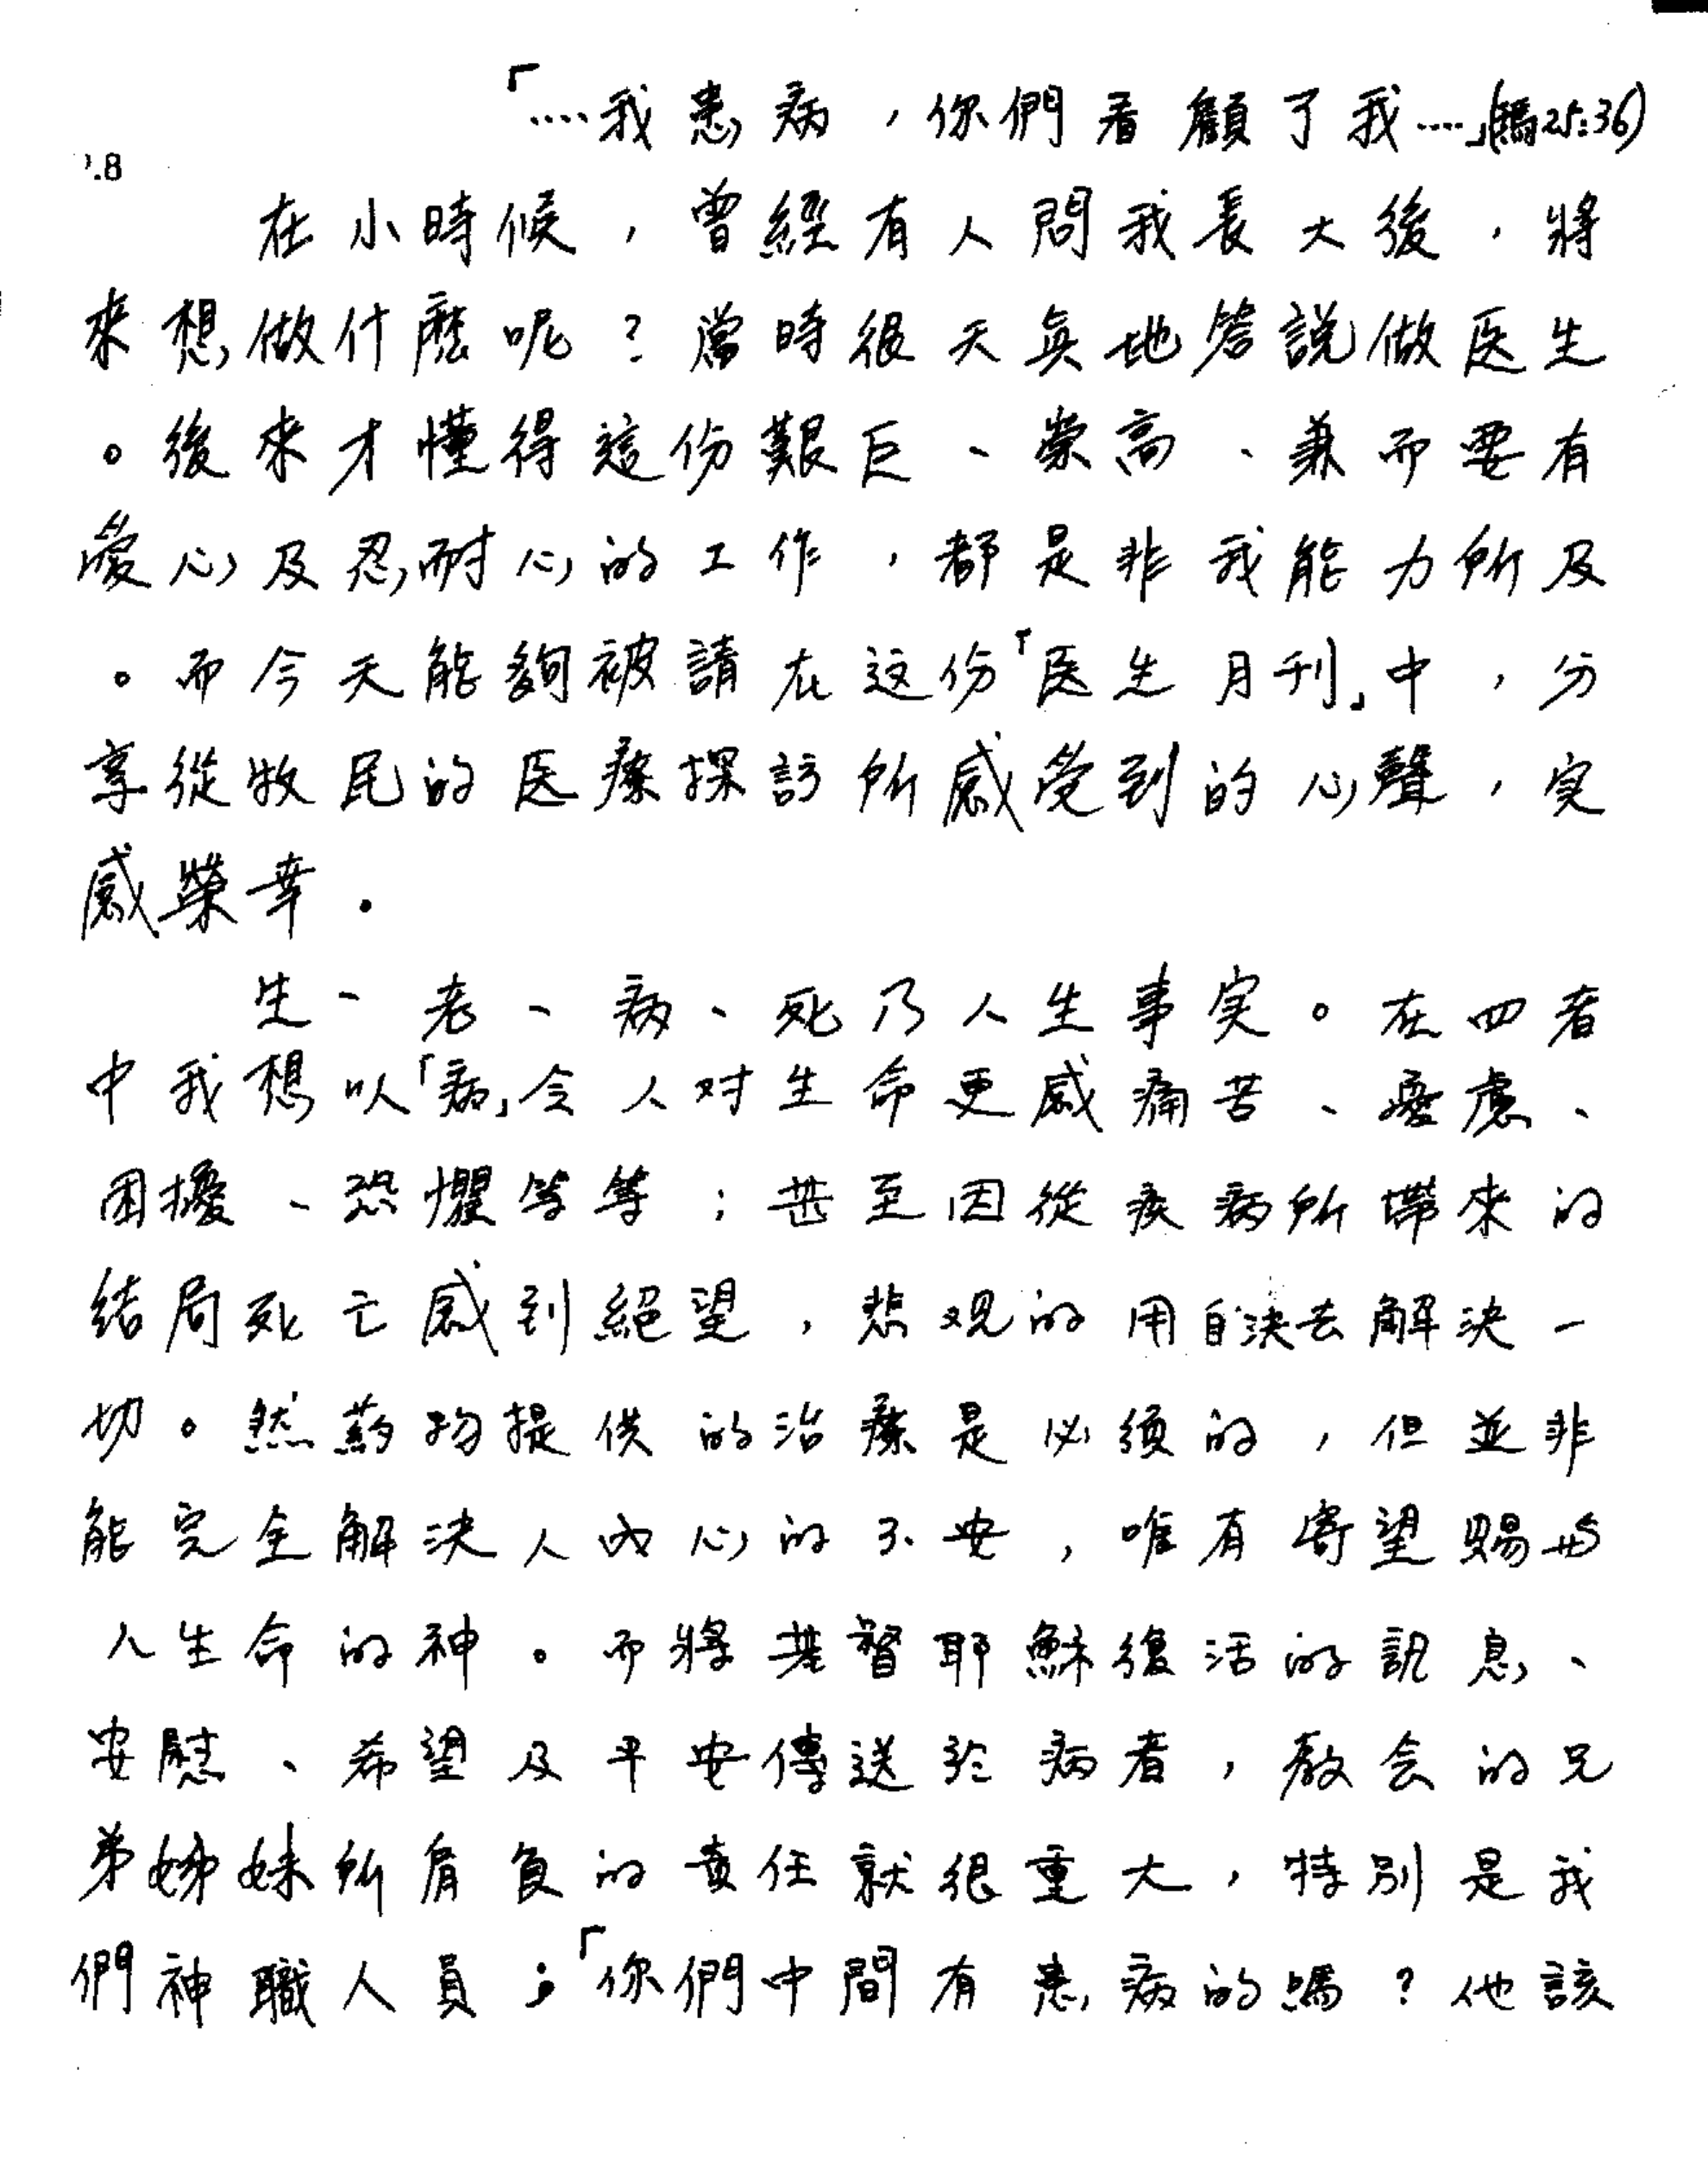 「‥‥我患病，你們看顧了我‥‥」(瑪25:36)
.8
在小時候，曾經有人問我長大後，將
來想做什麼呢？當時很天真地答說做医生
。後來才懂得這份艱巨、崇高、兼而要有
愛心及忍耐心的工作，都是非我能力所及
。而今天能夠被請在这份「医生月刊」中，分
享從牧民的医療探訪所感受到的心聲，実
感榮幸．
生、老、病、死乃人生事実。在四者
中我想以「病」令人对生命更感痛苦、憂慮、
困擾、恐懼等等；甚至因從疾病所帶來的
结局死亡感到絕望，悲观的用自決去解決一
切。然葯物提供的治療是必須的，但並非
能完全解決人內心的不安，唯有寄望賜与
人生命的神。而將基督耶穌復活的訊息、
安慰、希望及平安傳送於病者，教会的兄
弟姊妹所肩負的責任就很重大，特別是我
們神職人員；「你們中間有患病的嗎？他該